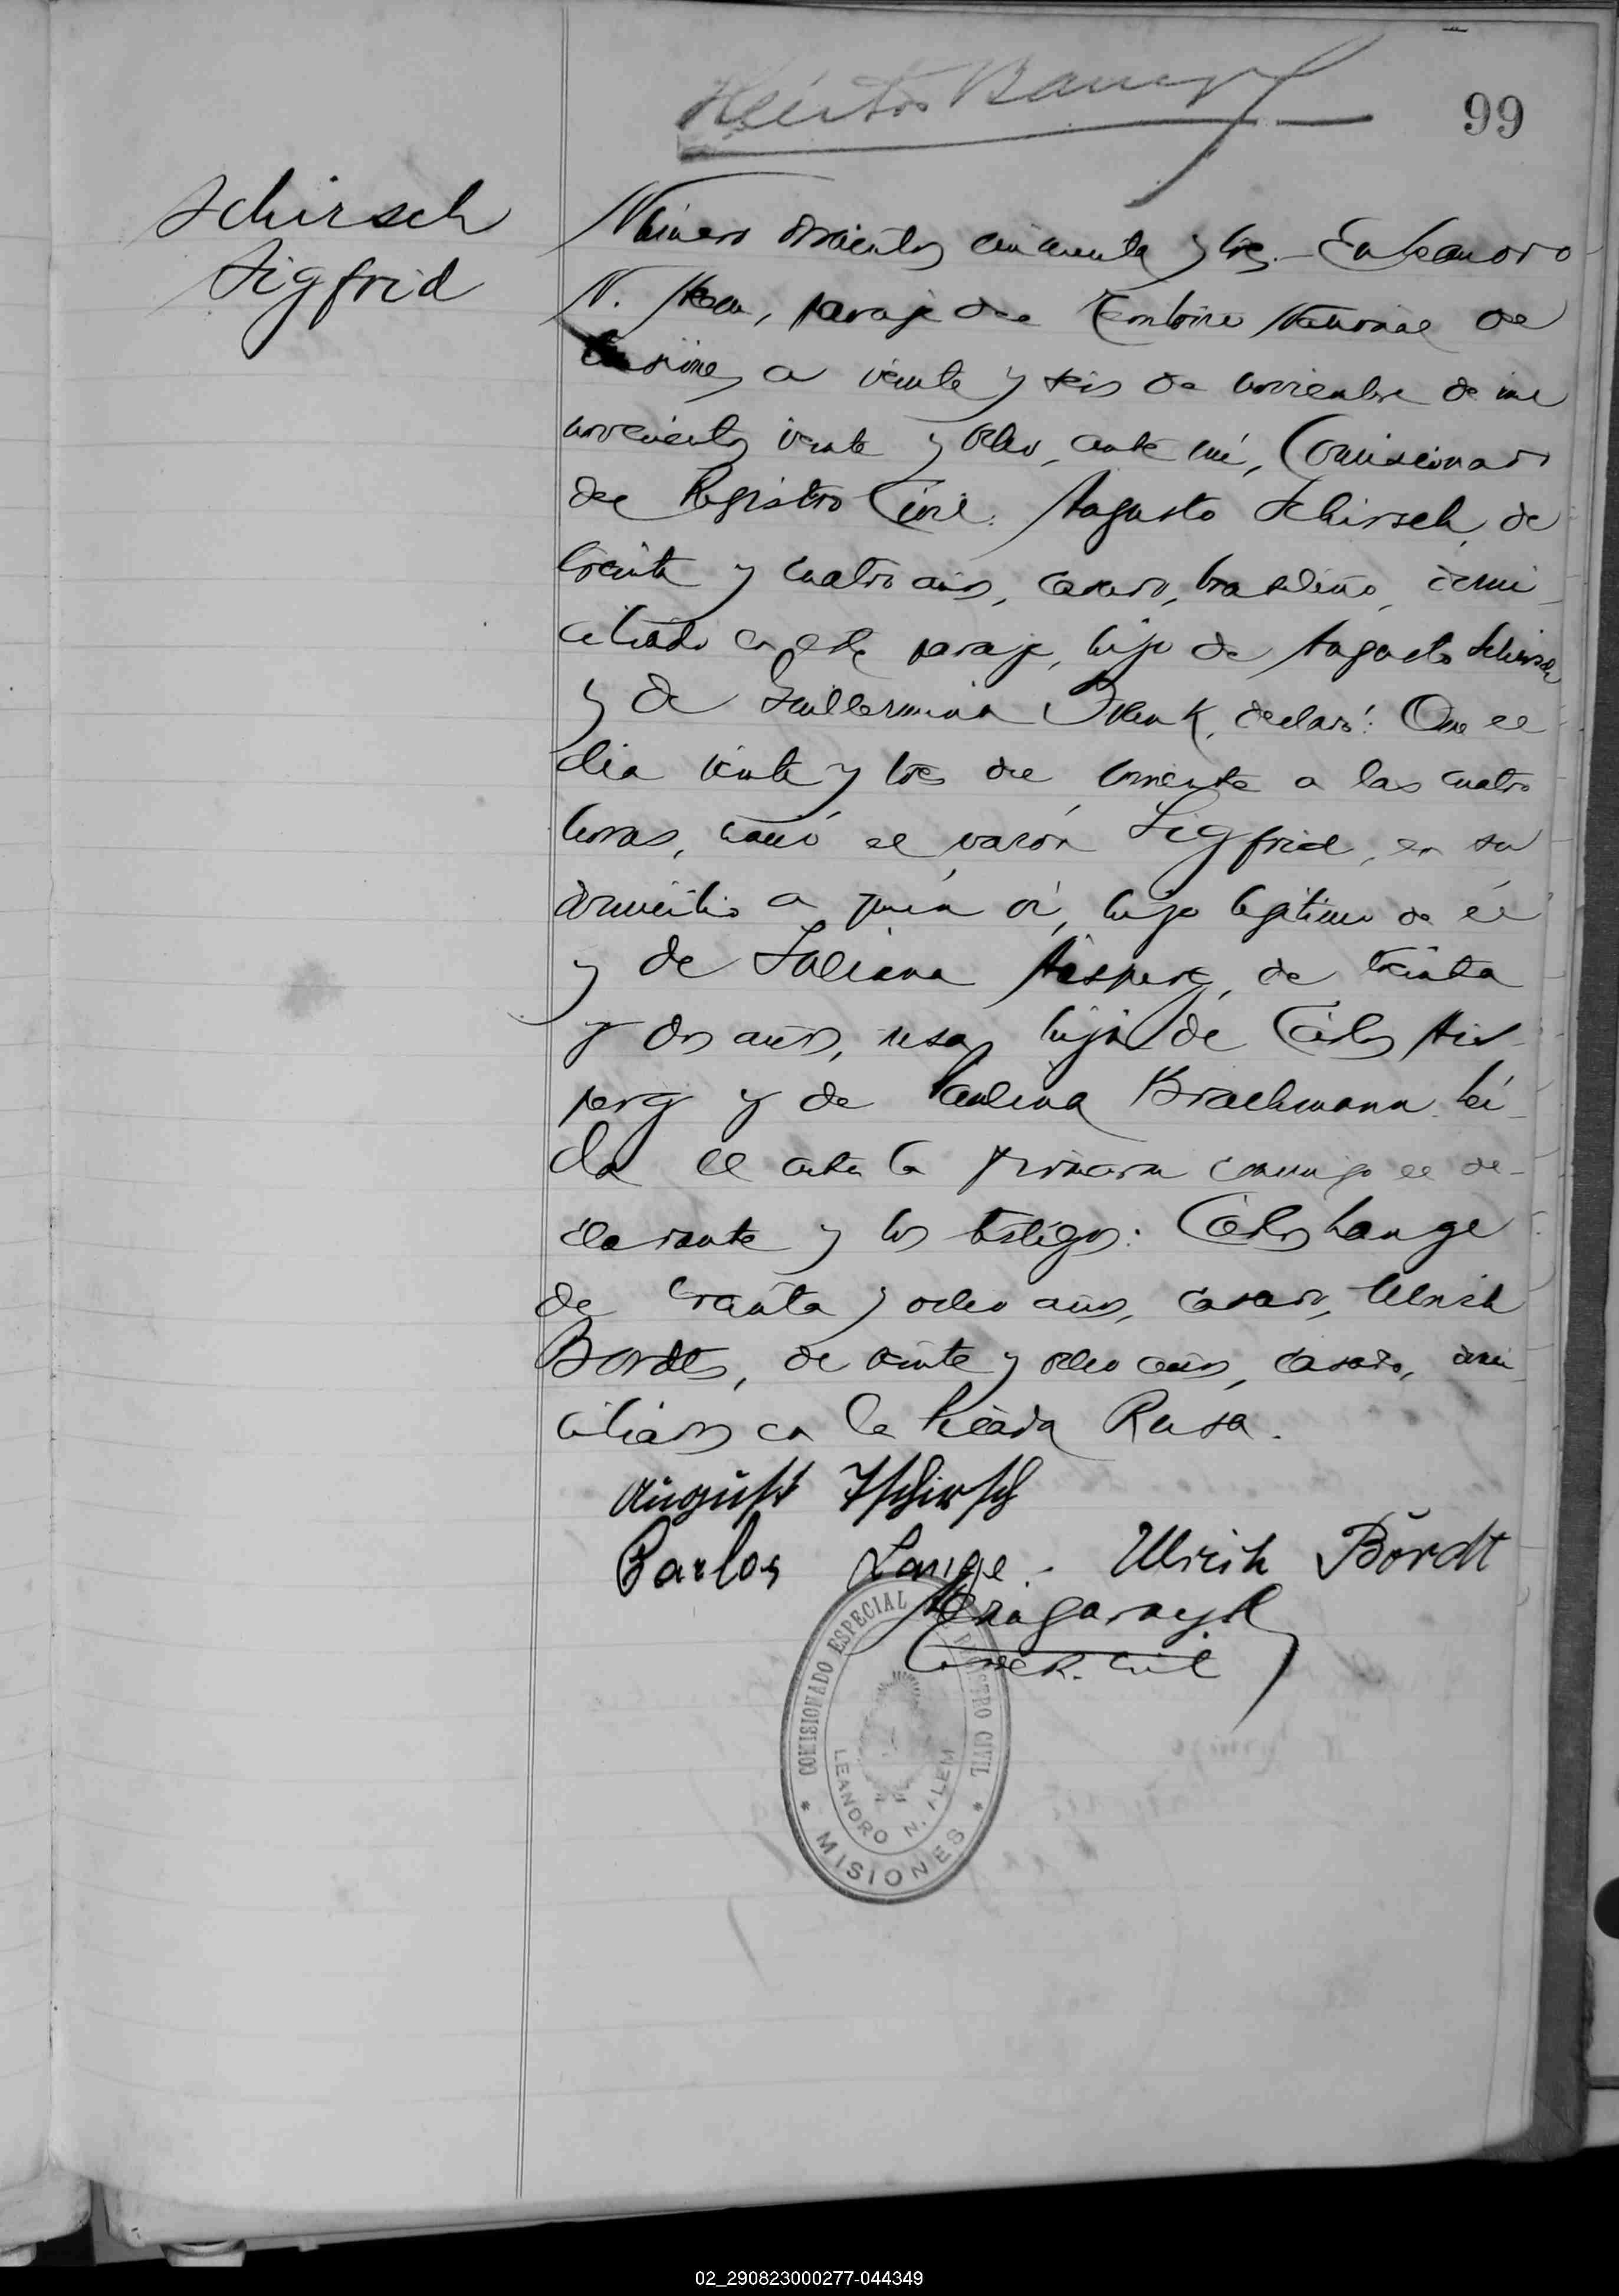 99
Schirsch
Sigfrid
Número doscientos cincuenta y tres.- En Leandro
N. Alem, paraje del Territorio Nacional de
Misiones a veinte y seis de noviembre de mil
novecientos veinte y ocho, ante mí, Comisionado
del Registro Civil: Augusto Schirsch, de
treinta y cuatro años, casado, brasileño, domi-
ciliado en este paraje, hijo de Augusto Schirsch
y de Guillermina declaró: Que el
día veinte y tres del corriente a las cuatro
horas, nació el varón Sigfrid, en su
domicilio a quién ví, hijo legítimo de él
y de Juliana Aisperg, de treinta
y dos años, rusa, hija de Carlos Ais-
perg y de Paulina Brachmann. Leí-
da el acta la firmaron conmigo el de-
clarante y los testigos: Carlos Lange
de treinta y ocho años, casado, Ulrich
Bordt, de veinte y ocho años, casado, domi-
ciliados en la Picada Rusa.
August Tschirsch
Carlos Lange.- Ulrich Bördt
COMISIONADO ESPECIAL DEL REGISTRO CIVIL
LEANDRO N. ALEM
* MISIONES *
02_290823000277-044349